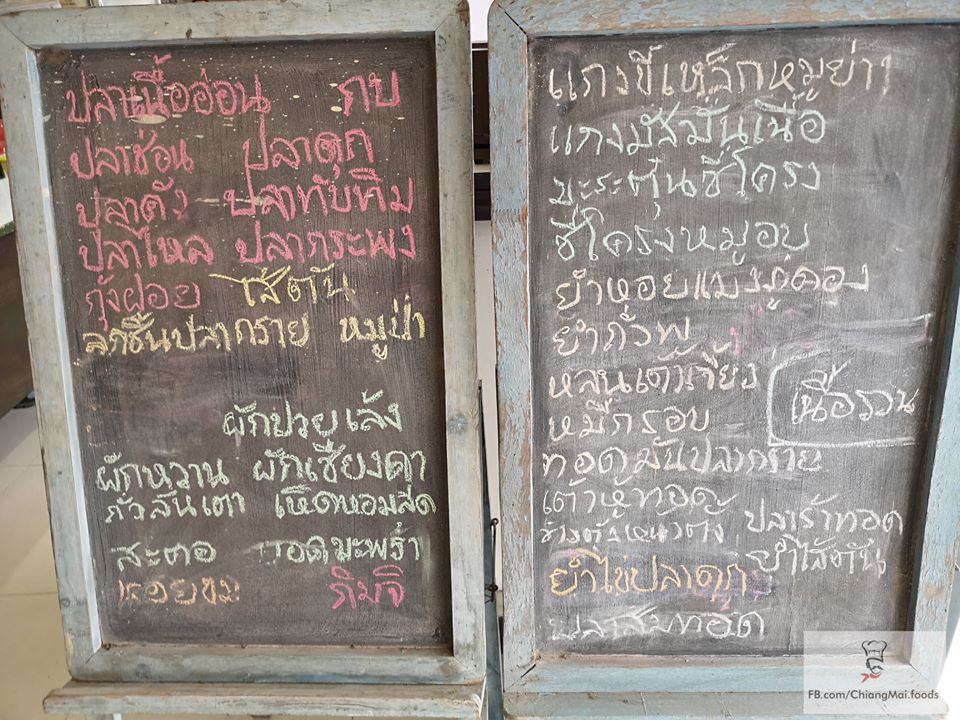 ปลาเนื้ออ่อน กบ
ปลาช่อน ปลาดุก
ปลาคัง ปลาทับทิม
ปลาไหล ปลากระพง
กุ้งฝอย ไส้ตัน
ลูกชิ้นปลากราย หมูป่า
ผักปวยเล้ง
ผักหวาน ผักเชียงดา
ถั่วลันเตา เห็ดหอมสด
สะตอ ยอดมะพร้าว
หอยขม กิมจิ
แกงขี้เหล็กหมูย่าง
แกงมัสมั่นเนื้อ
มะระตุ๋นซี่โครง
ซี่โครงหมูอบ
ยำหอยแมงภู่ดอง
ยำถั่วพู
หลนเต้าเจี้ยว
เนื้อรวน
หมึกรอบ
ทอดมันปลากราย
เต้าหู้ทอด
ข้าวตังหน้าตั้ง
ปลาร้าทอด
ยำไส้ตัน
ยำไข่ปลาดุก
ปลาส้มทอด
FB.com/ChiangMai.foods